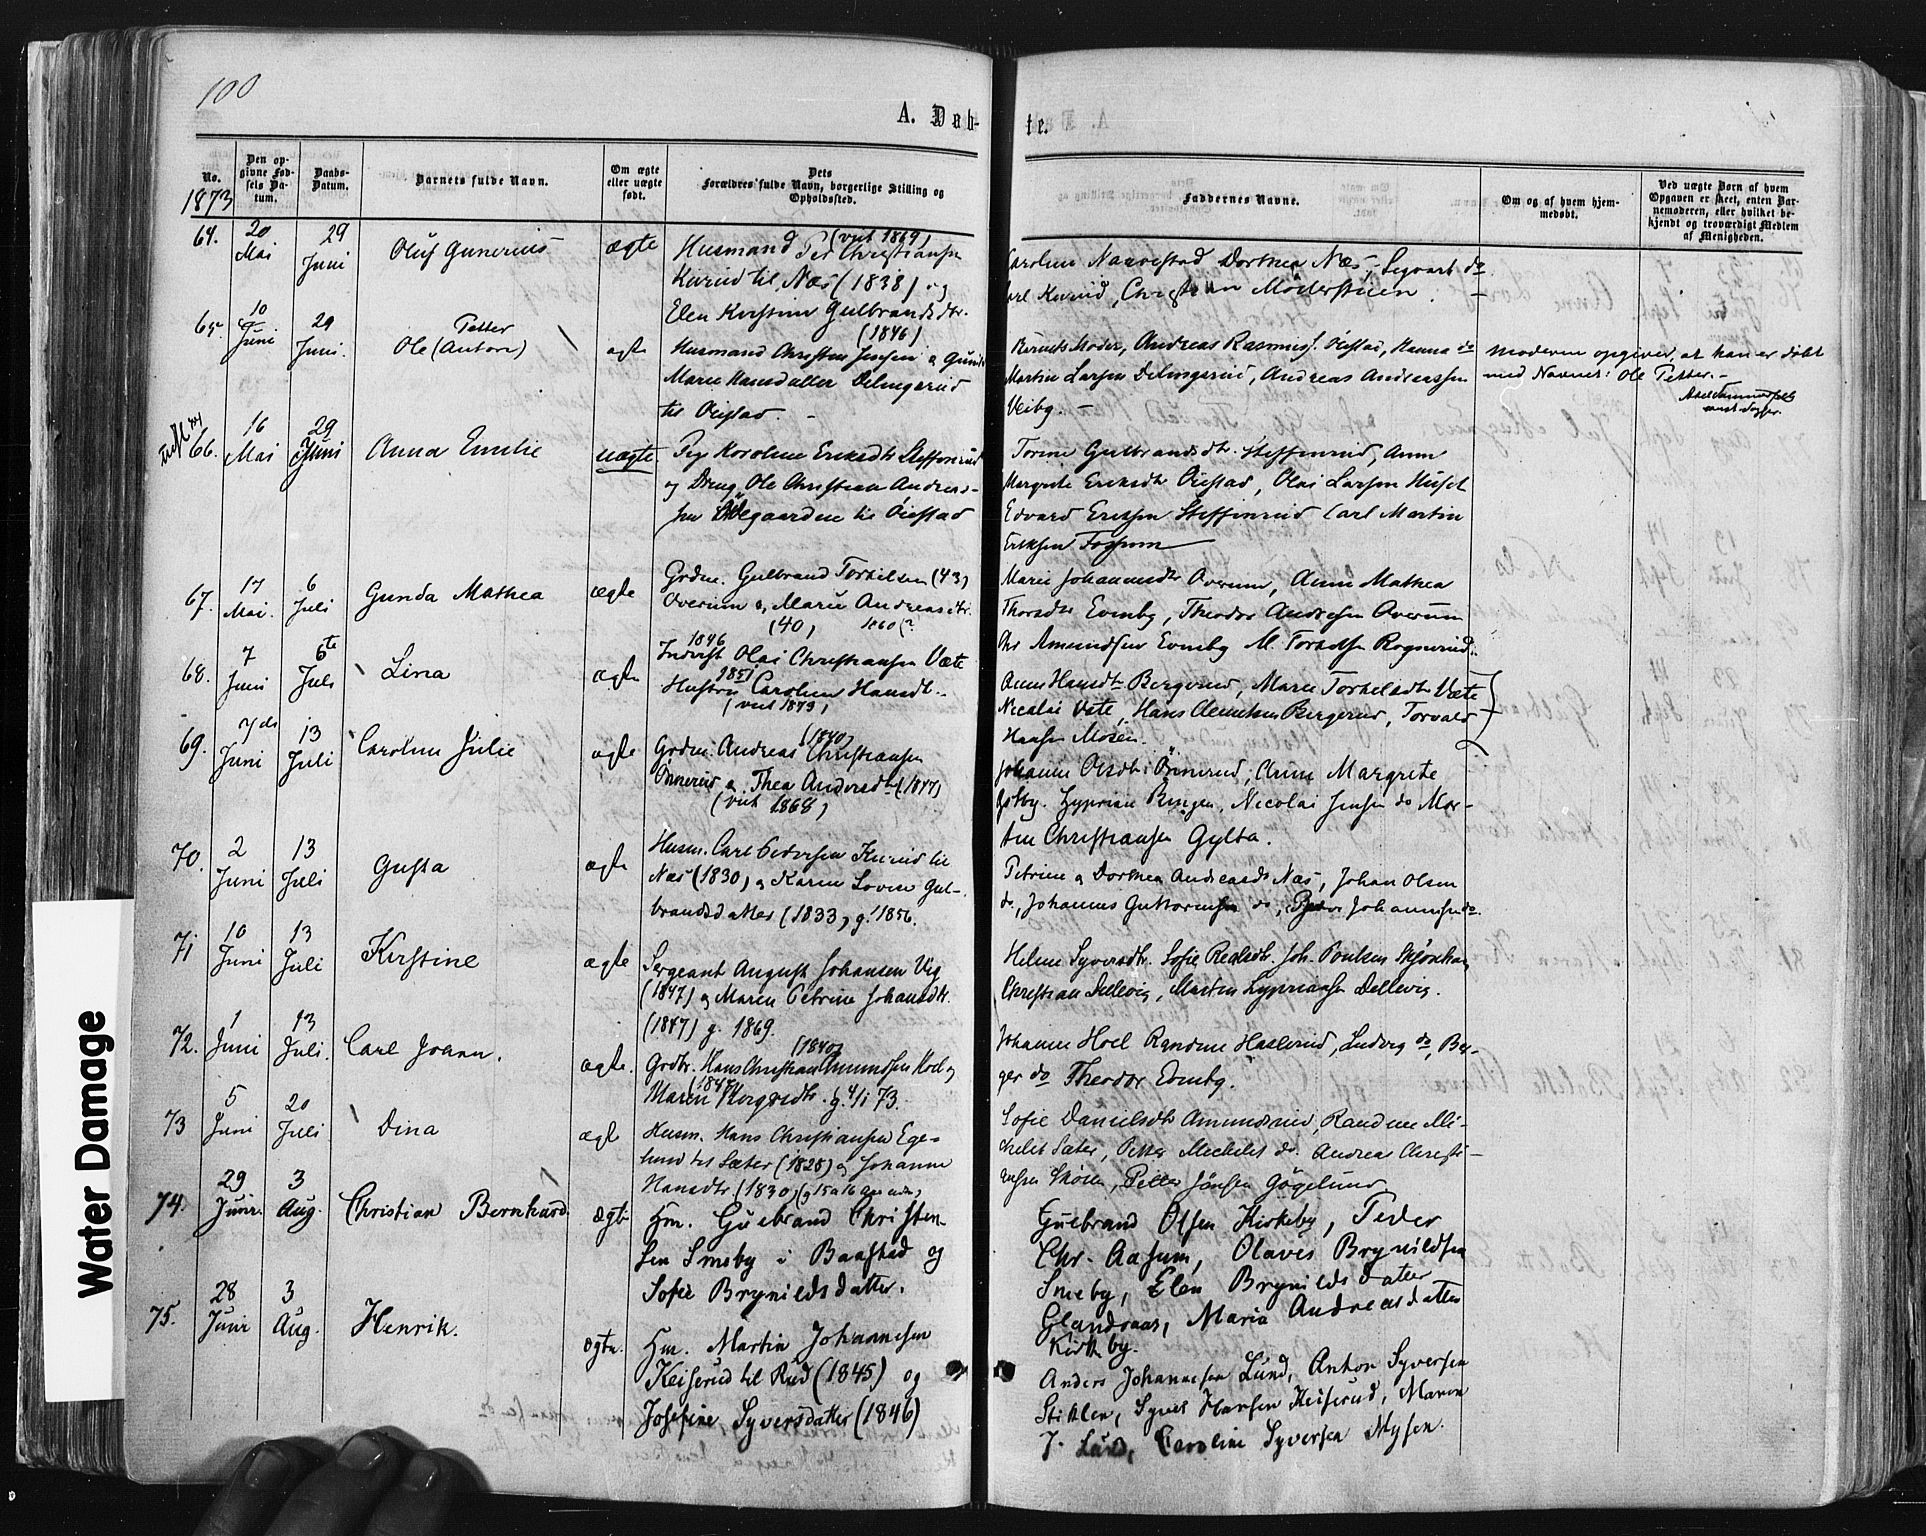 100
A. Døb-
te.
No.
Den op-
givne Fød-
sels Da-
tum.
Daabs-
Datum.
Barnets fulde Navn.
Om ægte
eller uægte
født.
Dets
Forældres fulde Navn, borgerlige Stilling og
Opholdssted.
Faddernes Navne.
Om og af hvem hjem-
medøbt.
Ved uægte Børn af hvem
Opgaven er skeet, enten Bar-
nemoderen, eller hvilket be-
kjendt og troværdigt Medlem
af Menigheden.
1873
64. 20 Mai 29 Juni Oluf Gunerius ægte
Husmand Per Christiansen (viet 1869)
Kurud til Næs (1838) og
Elen Kirstine Gulbrandsdtr.
(1846)
Dorthea Næs, Segvart do
Christian
65. 10 Juni 29 Juni. Ole (Anton) Petter ægte
Husmand Christen Jensen og
Marie Hansdatter Delingsrud
til Øiestad. -
Barnets Moder, Andreas Rasmus. Øiestad, Hanna do
Martin Larsen Delingsrud, Andreas Andreassen
Veiby. -
Moderen opgiver, at han er døbt
med Navnet: Ole Petter. -
66. 16 Mai 29 Juni Anna Emilie uægte
Pige Karoline Eriksdtr Steffensrud
og Dreng Ole Christian Andreas-
sen Ødegaarden til Øiestad
Torine Gulbrandsdtr. Steffensrud, Anne
Margrete Eriksdtr Øiestad, Olai Larsen Huset
Edvard Eriksen Steffensrud Carl Martin
Eriksen Fossum
67. 17 Mai. 6 Juli Gunda Mathea ægte
Grdm. Gulbrand Torkilsen (43)
Overum og Marie Andreasdtr.
(40) 1860 (?
Marie Johannesdtr Overum, Anne Mathea
Evenby, Theodor Andresen Overum
Amundsen Evenby M. Torkelsen
68. 7 Juni 6te Juli Lina ægte
1846
Inderst Olai Christiansen Væte
1851
Hustru Caroline Hansdtr..
(viet 1873)
Anne Hansdtr Bergerud, Marie Torkelsdtr Væte
Nicolai Væte, Hans Clemetsen Bergerud, Torvald
Hansen Mosen.
69. 7de Juni 13 Juli Caroline Julie ægte
(1840)
Grdm. Andreas Christiansen
Ønnerud og Thea Andersdtr (1847)
(viet 1868)
Johanne Olsdtr Ønnerud, Anne Margrete
Cyprian Bingen, Nicolai Jensen do Mor-
ten Christiansen Gylta.
70. 2 Juni 13 Juli Gusta ægte
Husm. Carl Pedersen Kurud til
Næs (1830) og Karen Lovise Gul-
brandsdatter (1833) g. 1856.
Petrine og Dorthea Andreasdtr Næs, Johan Olsen
do, Johannes Guttormsen do, Peder Johannesen do.
71 10 Juni 13 Juli Kirstine ægte
Sergeant August Johansen Vig
(1847) og Maren Petrine Johansdtr.
(1847) g. 1869.
Helene Syversdtr. Sofie
Christian Dellevig, Martin Cypriansen Dellevig.
72. 1 Juni 13 Juli. Carl Johan. ægte.
(1840)
Grdbr. Hans Christian Amundsen Hoel og
(1848)
Maren g. 4/1 73.
Johanne Hoel Randine Haslerud, Ludvig do, Bir-
ger do Theodor Evenby.
73 5 Juni 20 Juli Dina ægt
Husm. Hans Christiansen Ege-
lund til Sæter (1828) og Johanne
Hansdtr (1830)
Sofie Danielsdtr Amundsrud, Randine Mi-
chelet Sæter, Petter Michelet do. Andrea Christi-
ansen Skolen, Petter Jönsen Gögelund
74. 29 Juni. 3 Aug. Christian Bernhard ægte
Hm. Gulbrand Christen-
sen Smeby i Baastad og
Sofie Brynildsdatter.
Gulbrand Olsen Kirkeby, Peder
Chr. Aasum, Olaves Brynildsen
Smeby, Elen Brynildsdatter
Glandraas, Maria Andreasdatter
Kirkeby.
75. 28 Juni 3 Aug. Henrik. ægte.
Hm. Martin Johannesen
Keiserud til Rud (1845) og
Josefine Syversdatter (1846)
Anders Johannesen Lund, Anton Syversen
Stiklen, Syver Hansen Keiserud, Maren
J. Lund, Caroline Syversen Mysen.
Water Damage